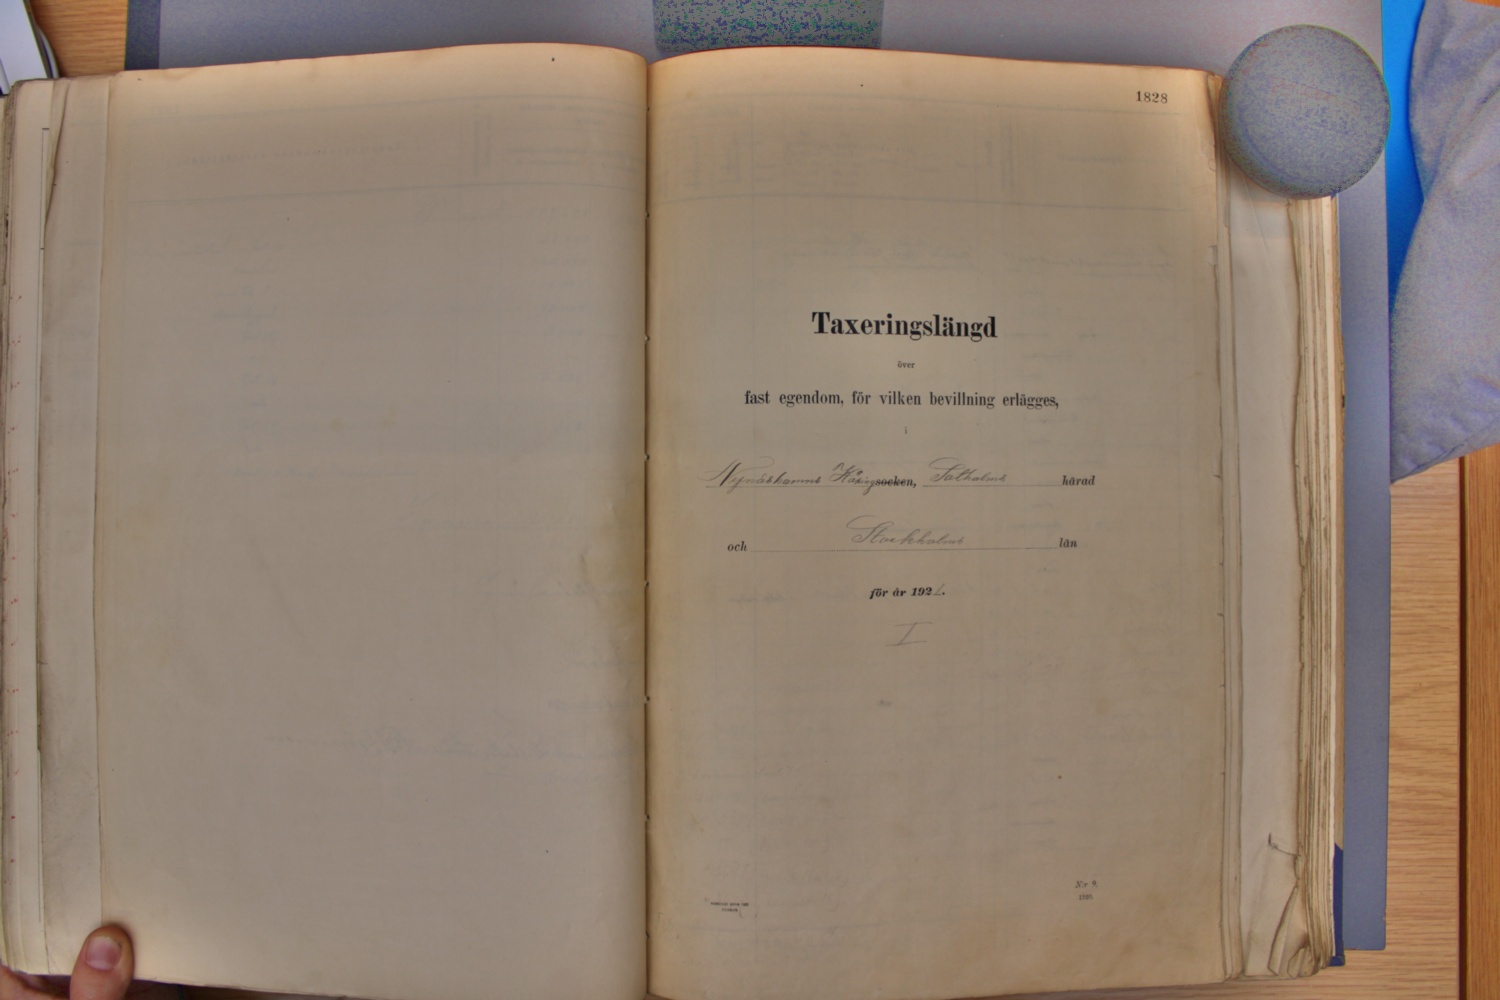 1828
Taxeringslängd
över
fast egendom, för vilken bevillning erlägges,
i
Nynäshamns Köping socken, Sotholms härad
och Stockholms län
för år 1921.
I
N:r 9.
1920.